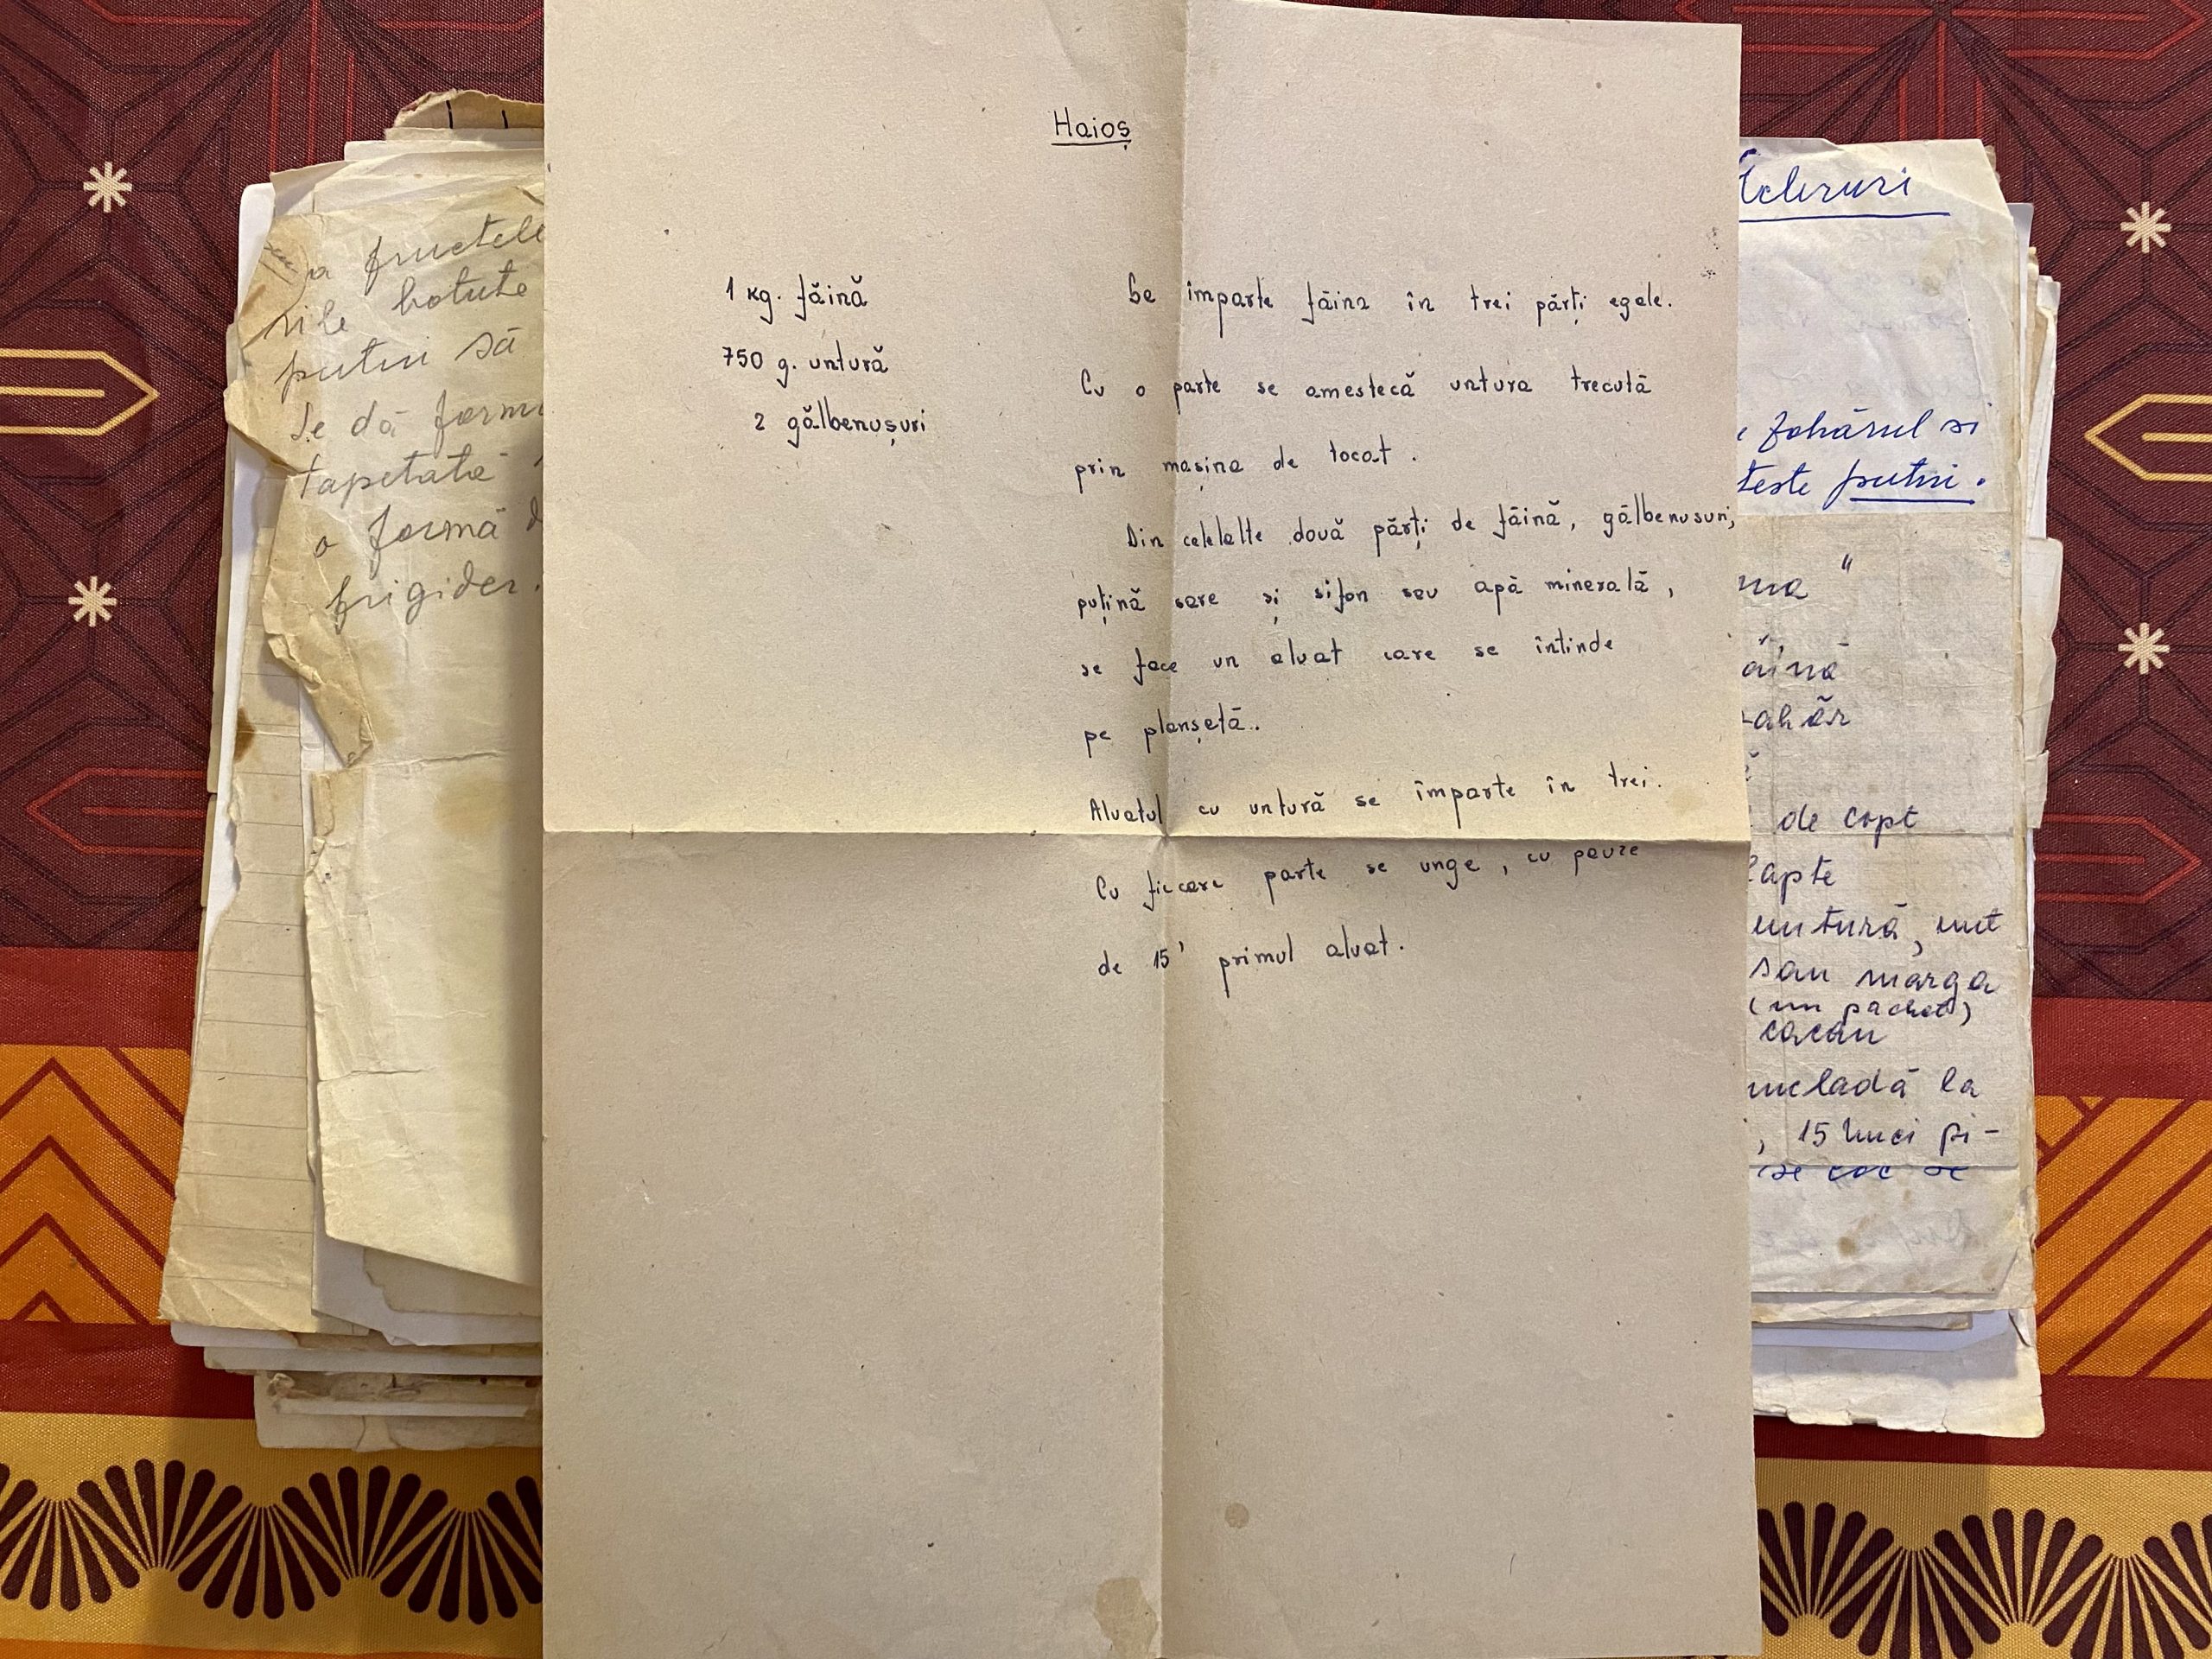 Haioș
1 kg. făină
750 g. untură
2 gălbenușuri
Se împarte făina în trei părți egale.
Cu o parte se amestecă untura trecută
prin mașina de tocat.
Din celelalte două părți de făină, gălbenusuri,
puțină sare și sifon sau apă minerală,
se face un aluat care se întinde
pe planșetă.
Aluatul cu untură se împarte în trei.
Cu fiecare parte se unge, cu pauze
de 15' primul aluat.
a fructele
rile batute
putin să
Se dă form
tapetată
o formă d
frigider.
Ecleruri
zahărul si
teste putin.
ma "
ăină
zahăr
de copt
lapte
untură, unt
sau marga
(un pachet)
cacau
mcladă la
, 15 buci pi-
se coc se